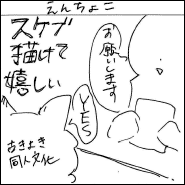 えんちょこ
お願いします
スケブ
描けて
嬉しい
YES
よきよき
同人文化